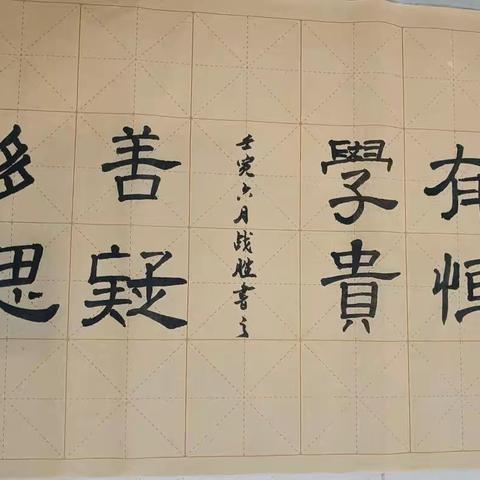 多思
善疑
壬寅六月战胜書之
學貴
有恒